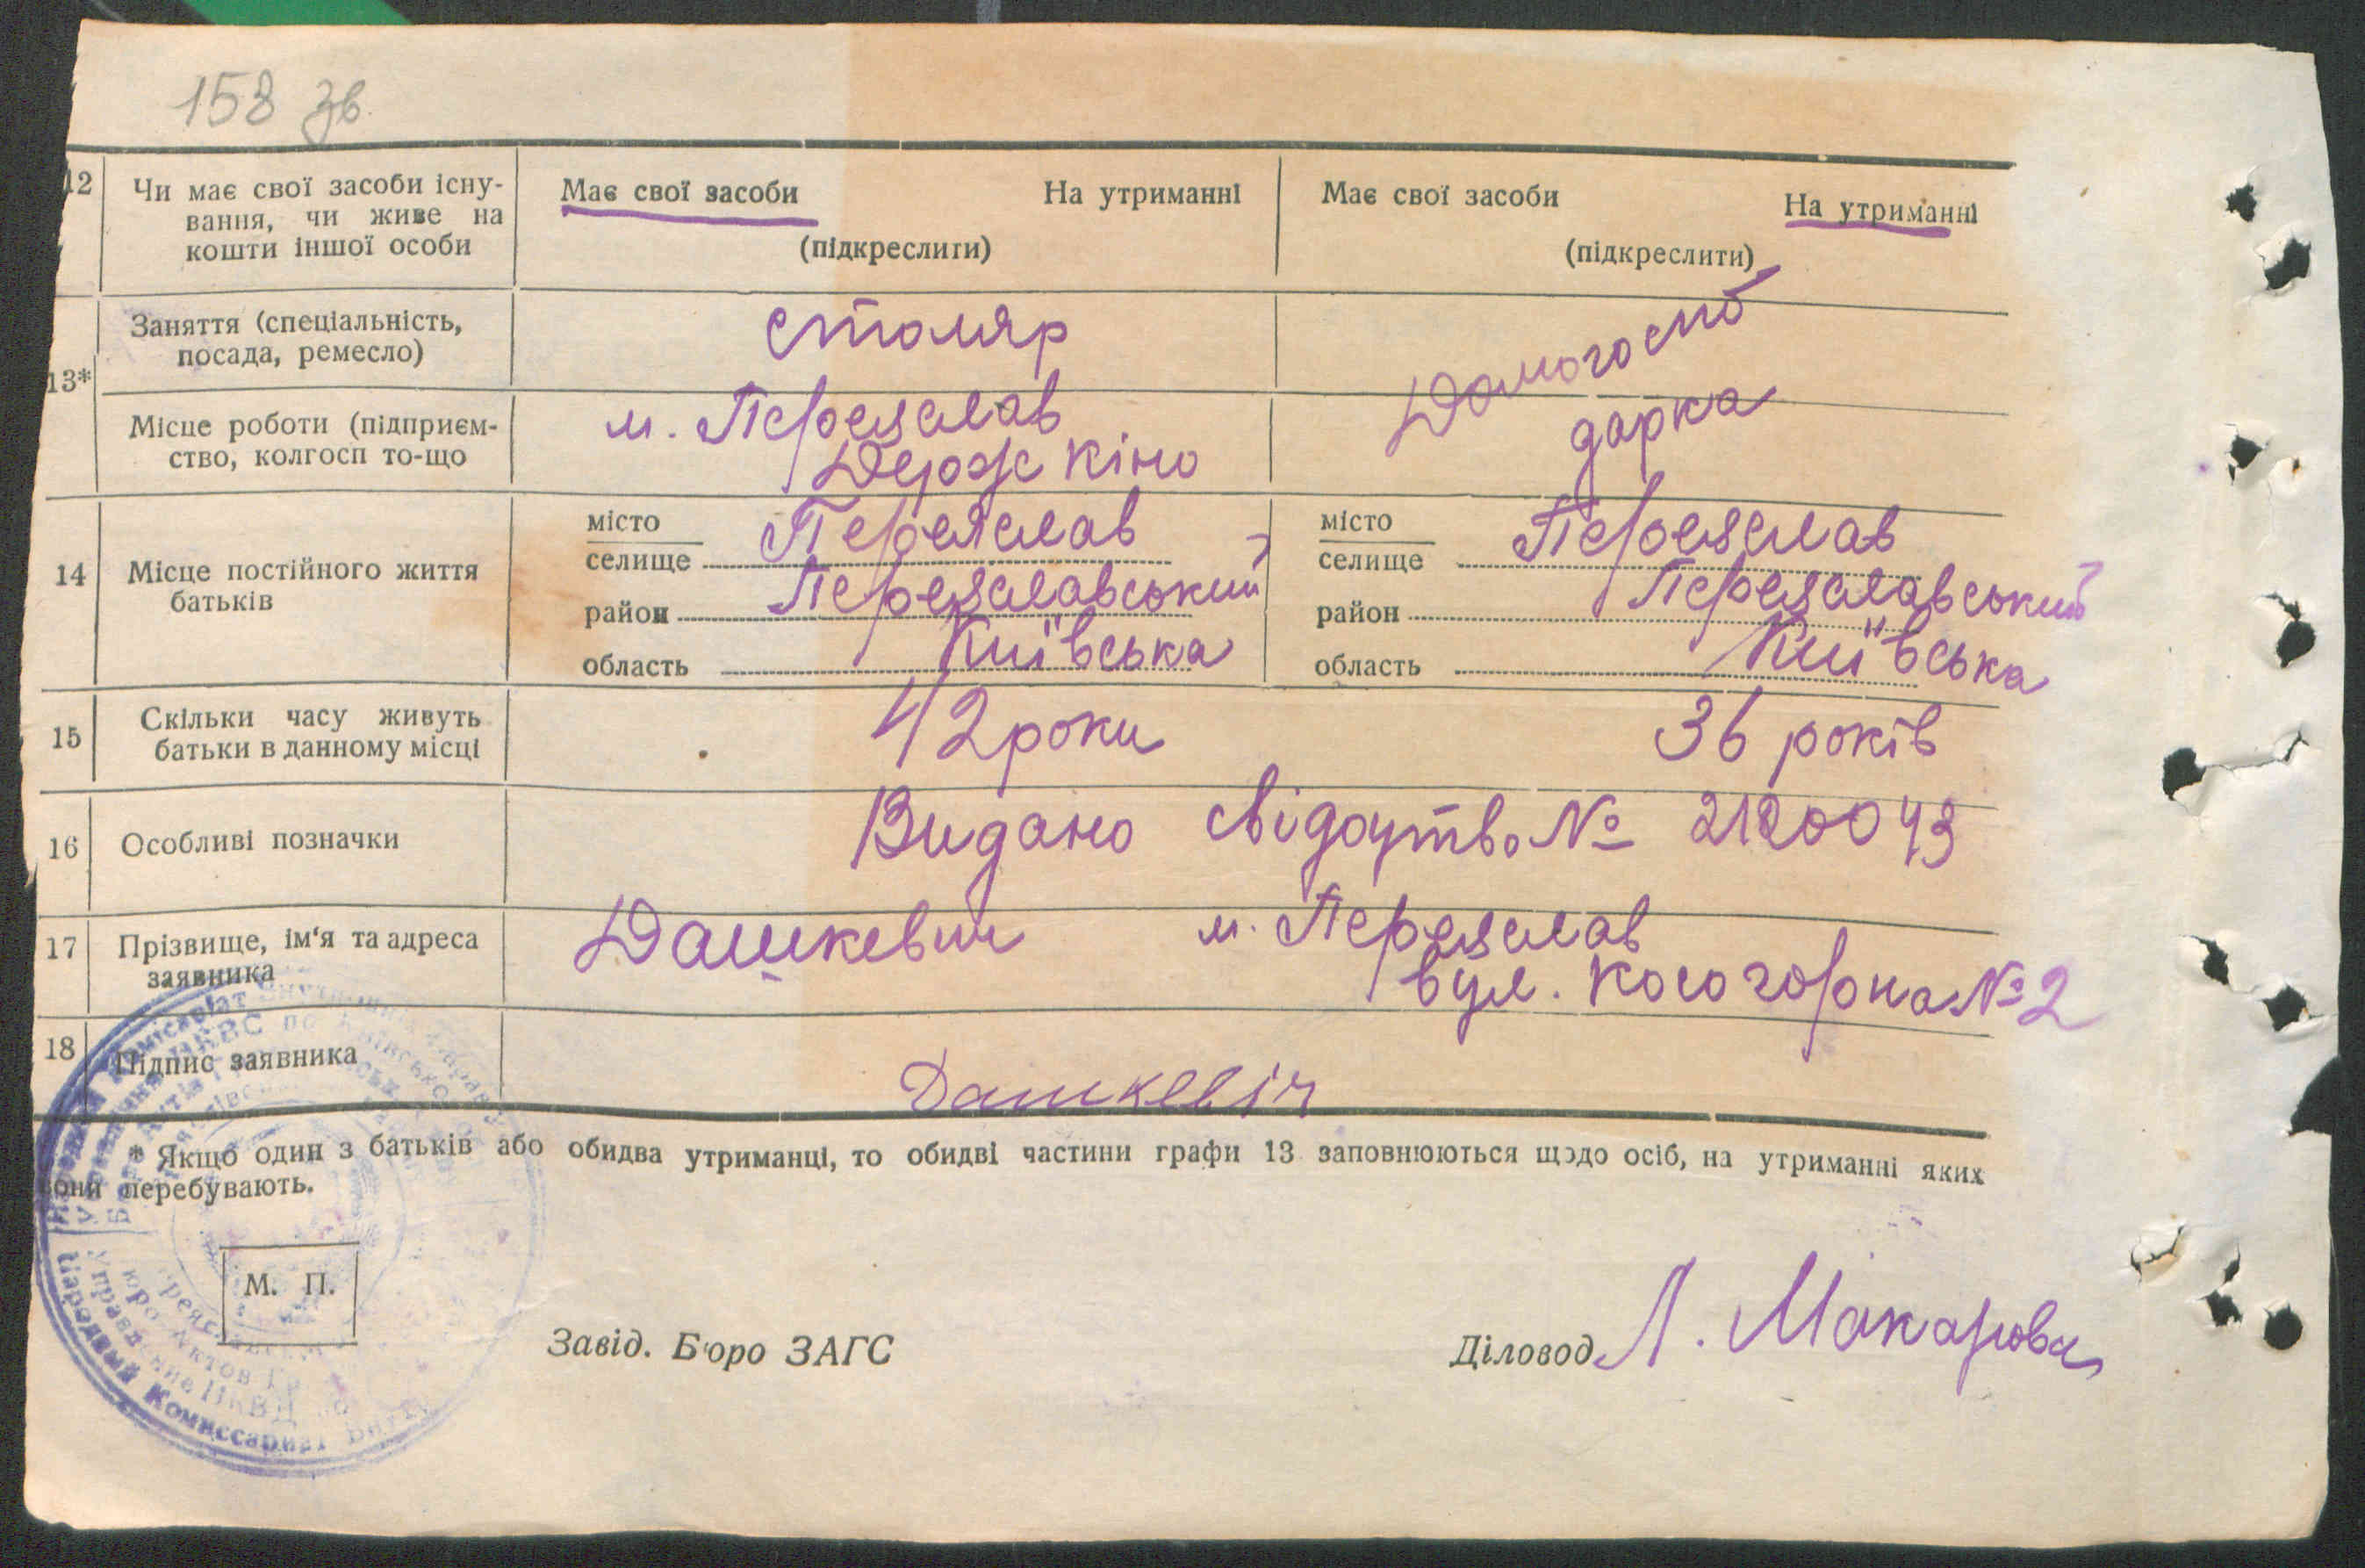 158 зв.
12 Чи має свої засоби існу-
вання, чи живе на
кошти іншої особи
Має свої засоби На утриманні
(підкреслити)
Має свої засоби На утриманні
(підкреслити)
13*
Заняття (спеціальність,
посада, ремесло)
столяр
Домогоспо
дарка
Місце роботи (підприєм-
ство, колгосп то-що
м. Переяслав
Держ кіно
14 Місце постійного життя
батьків
місто
селище Переяслав
район Переяславський
область Київська
місто
селище Переяслав
район Переяславський
область Київська
15 Скільки часу живуть
батьки в данному місці
42 роки 36 років
16 Особливі позначки
Видано свідоцтво № 2120043
17 Прізвище, ім'я та адреса
заявника
Дашкевич м. Переяслав
вул. Косогорна №2
18 Підпис заявника
Дашкевіч
* Якщо один з батьків або обидва утриманці, то обидві частини графи 13 заповнюються щодо осіб, на утриманні яких
вони перебувають.
М. П.
Завід. Бюро ЗАГС
Діловод Л. Макарова
Народный Комиссариат